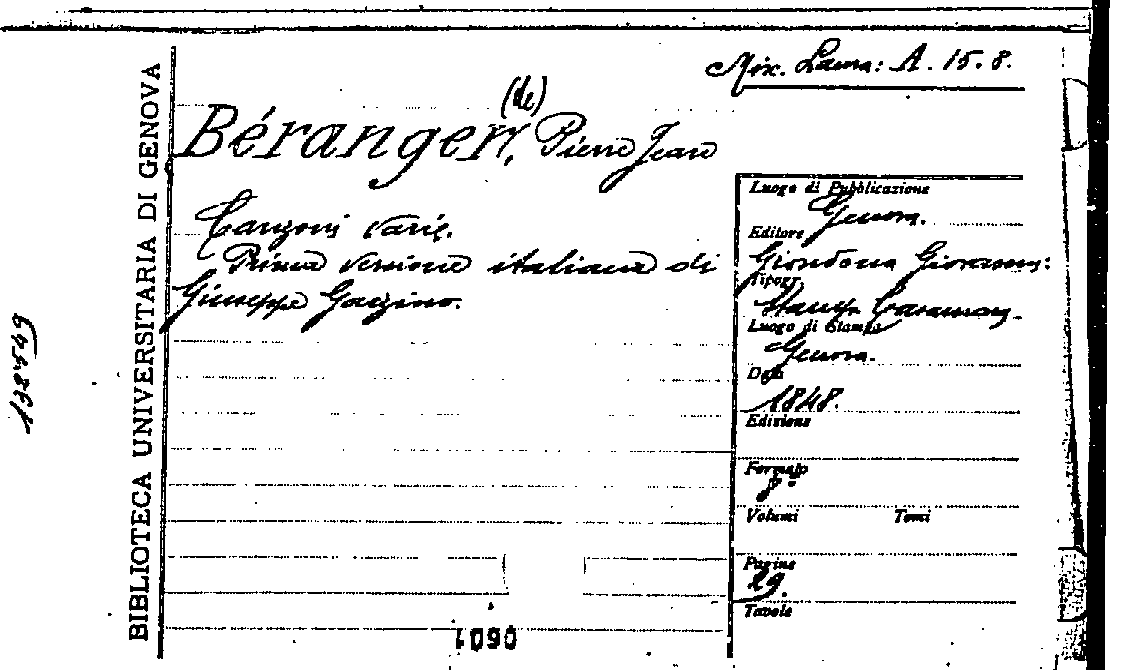 Mix. Laura: A. 15. 8.
Béranger (de), Pierre Jean
Canzoni varie.
Prima versione italiana di
Giuseppe Gazzino.
Luogo di Pubblicazione
Genova.
Editore
Giordano Giovanni:
Tipogr.
Stamp. Casamara.
Luogo di Stampa
Genova.
Data
1848.
Edizione
Formato
8°
Volumi Tomi
Pagine
29.
Tavole
BIBLIOTECA UNIVERSITARIA DI GENOVA